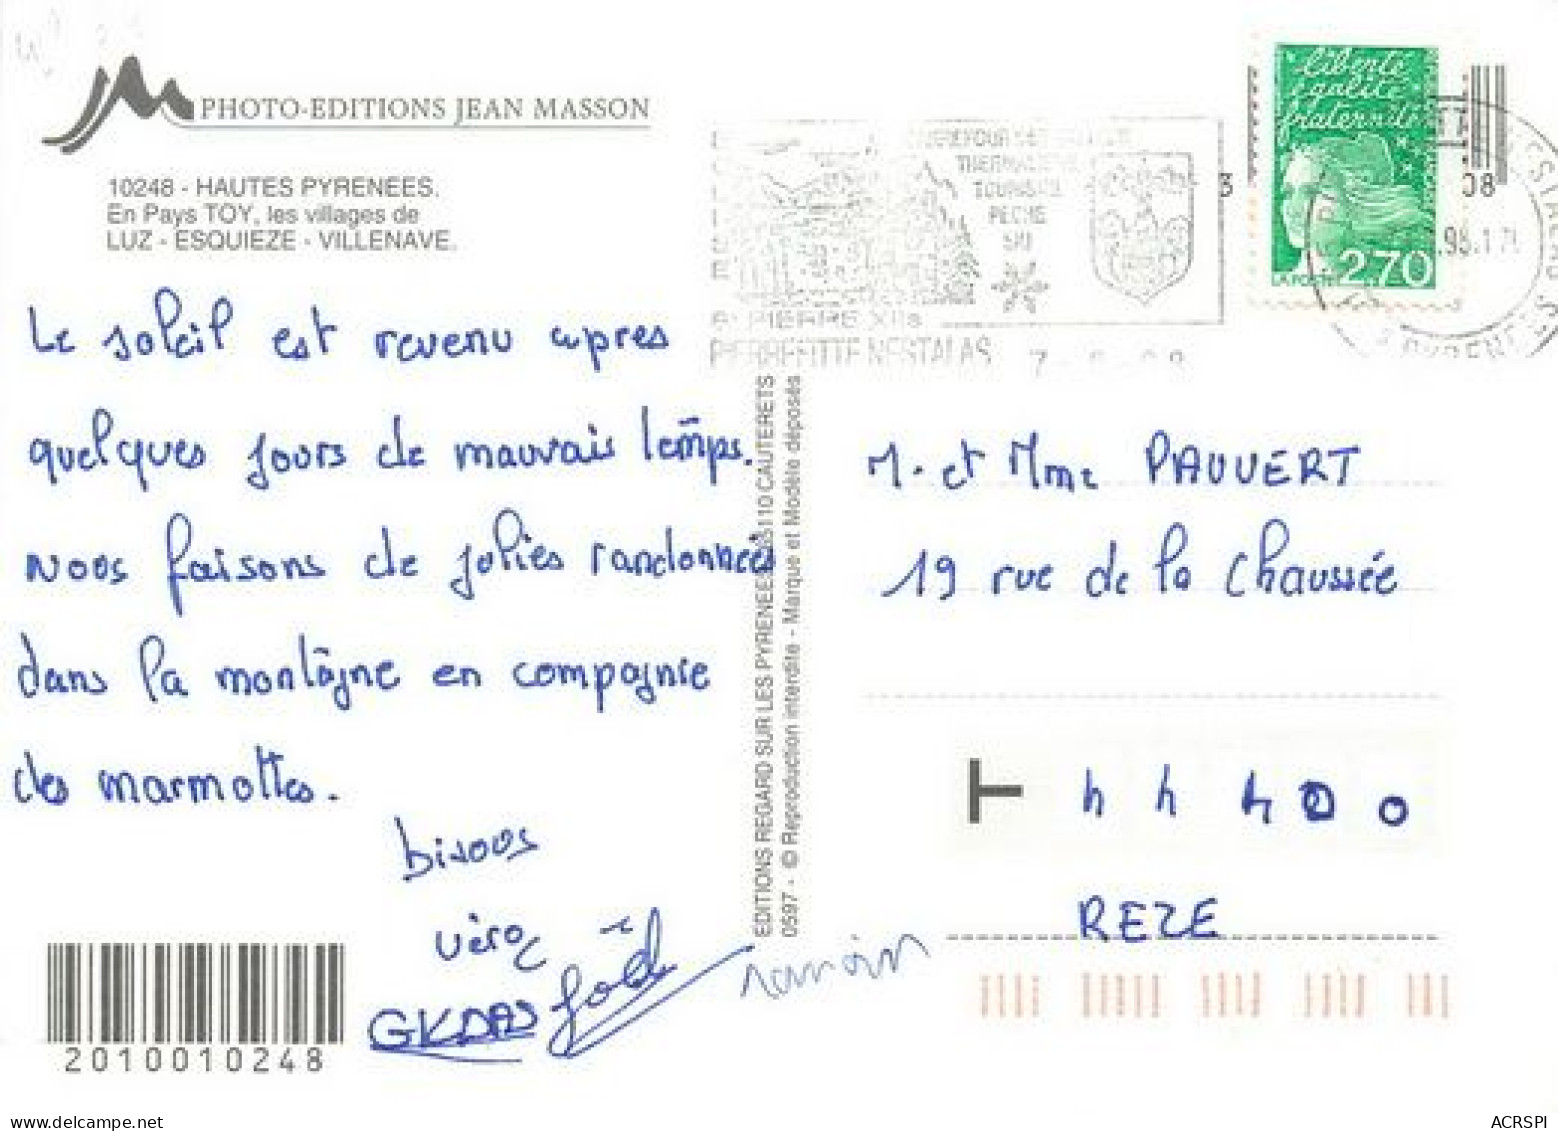 PHOTO-EDITIONS JEAN MASSON
10248 - HAUTES PYRENEES.
En Pays TOY, les villages de
LUZ - ESQUIEZE - VILLENAVE.
Le soleil est revenu apres
quelques jours de mauvais temps.
Nous faisons de jolies randonnées
dans la montagne en compagnie
des marmottes.
bisous
Véro
Joël
romain
2010010248
EDITIONS REGARD SUR LES PYRENEES 65110 CAUTERETS
0597 - © Reproduction interdite - Marque et Modèle déposés
THERMALISME
TOURISME
PECHE
SKI
PIERREFITTE NESTALAS
liberté
égalité
fraternité
LA POSTE
2,70
M. et Mme PAUVERT
19 rue de la Chaussée
44400
REZE
delcampe.net
ACRSPI